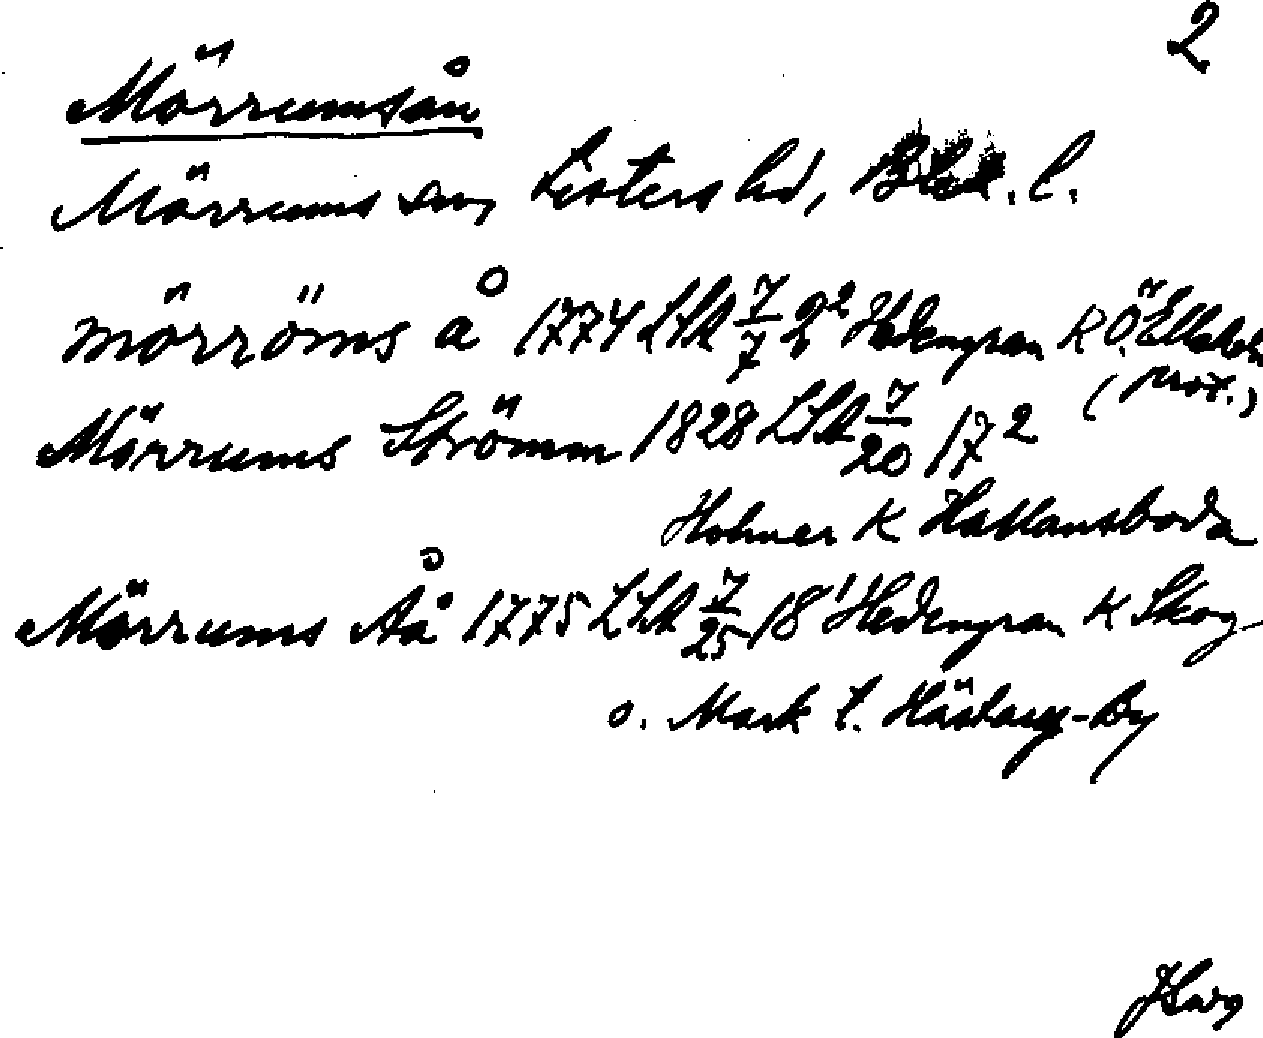 2
Mörrumsån
Mörrums sn, Listers hd, Blek. l.
mörröms å 1774 LSA 7/7 2² Hedengran K Ö. Elleholm
(prot.)
Mörrums Strömm 1828 LSA 7/20 17²
Holmer K Hallansboda
Mörrums Åå 1775 LSA 7/25 18¹ Hedengran K Skog
o. Mark t. Häståryd-By